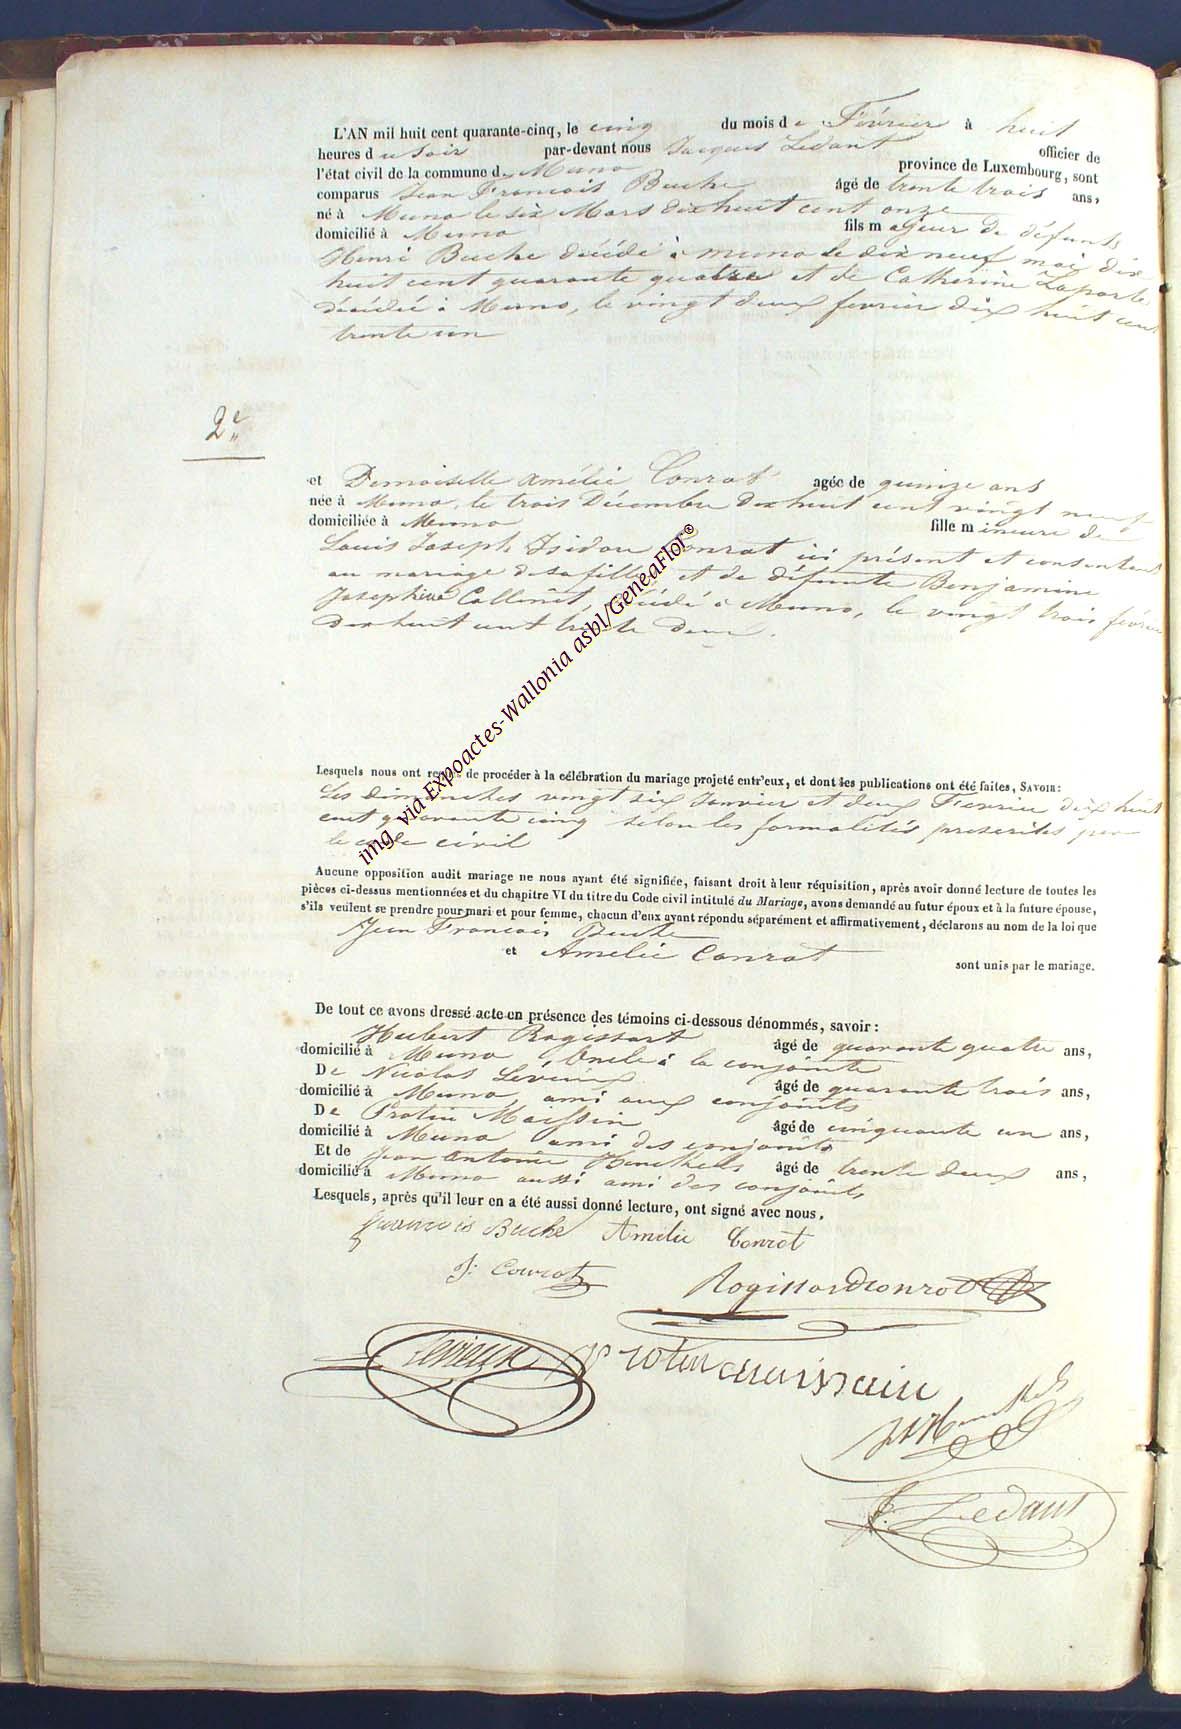 L'AN mil huit cent quarante-cinq, le cinq du mois de Février à huit
heures du Soir par-devant nous Jacques Ledant officier de
l'état civil de la commune de Muno province de Luxembourg, sont
comparus Jean François Buche âgé de trente trois ans,
né à Muno le six Mars dix huit cent onze
domicilié à Muno fils majeur de défunts
Henri Buche décédé à muno le dix neuf mai dix
huit cent quarante quatre et de Catherine Laporte
décédée à Muno, le vingt deux fevrier dix huit cent
trente un
2e
et Demoiselle Amélie Conrot agée de quinze ans
née à Muno, le trois Décembre dix huit cent vingt neuf
domiciliée à Muno fille mineure de
Louis Joseph Isidore Conrot ici présent et consentant
au mariage de sa fille et de défunte Benjamine
Josephine Collinet, décédé à Muno, le vingt trois février
dix huit cent trente deux.
Lesquels nous ont requis de procéder à la célébration du mariage projeté entr'eux, et dont les publications ont été faites, SAVOIR:
Les dimanches vingt six Janvier et deux Fevrier dix huit
cent quarante cinq selon les formalités prescrites par
le code civil
Aucune opposition audit mariage ne nous ayant été signifiée, faisant droit à leur réquisition, après avoir donné lecture de toutes les
pièces ci-dessus mentionnées et du chapitre VI du titre du Code civil intitulé du Mariage, avons demandé au futur époux et à la future épouse,
s'ils veulent se prendre pour mari et pour femme, chacun d'eux ayant répondu séparément et affirmativement, déclarons au nom de la loi que
Jean François Buche
et Amélie Conrot
sont unis par le mariage.
De tout ce avons dressé acte en présence des témoins ci-dessous dénommés, savoir :
Hubert Rogissart âgé de quarante quatre ans,
domicilié à Muno, Oncle à la conjointe
De Nicolas Lévieux âgé de quarante trois ans,
domicilié à Muno, ami aux conjoints
De Protin Maissin âgé de cinquante un ans,
domicilié à Muno ami des conjoints
Et de Jean Antoine Henckels âgé de trente deux ans,
domicilié à Muno aussi ami des conjoints
Lesquels, après qu'il leur en a été aussi donné lecture, ont signé avec nous.
françois Buche Amélie Conrot
J: Conrot
Rogissart Conrot
Levieux Protin maissin
JAHenckels
J. Ledant
img via Expoactes-Wallonia asbl/GeneaFlor®